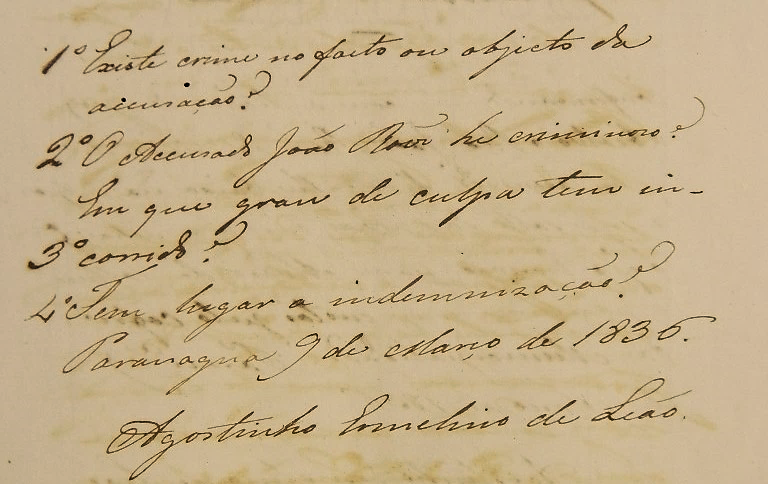 1º Existe crime no facto ou objecto da
accusação?
2º O Accusado João Roiz he criminoso?
Em que grau de culpa tem in-
3º corrido?
4º Tem lugar a indemnização?
Paranagua 9 de Março de 1836.
Agostinho Ermelino de Leão.